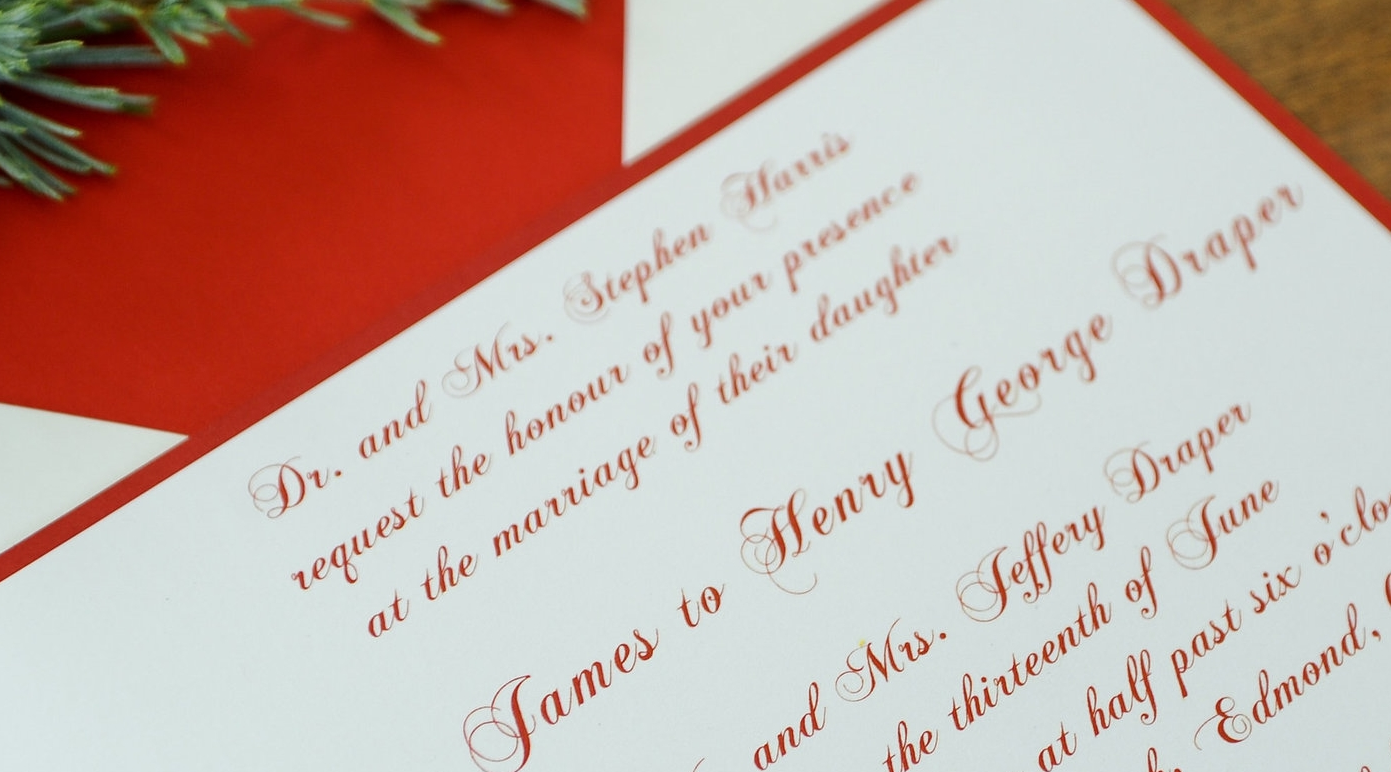 Dr. and Mrs. Stephen Harris
request the honour of your presence
at the marriage of their daughter
James to Henry George Draper
and Mrs. Jeffery Draper
the thirteenth of June
at half past six
Edmond,